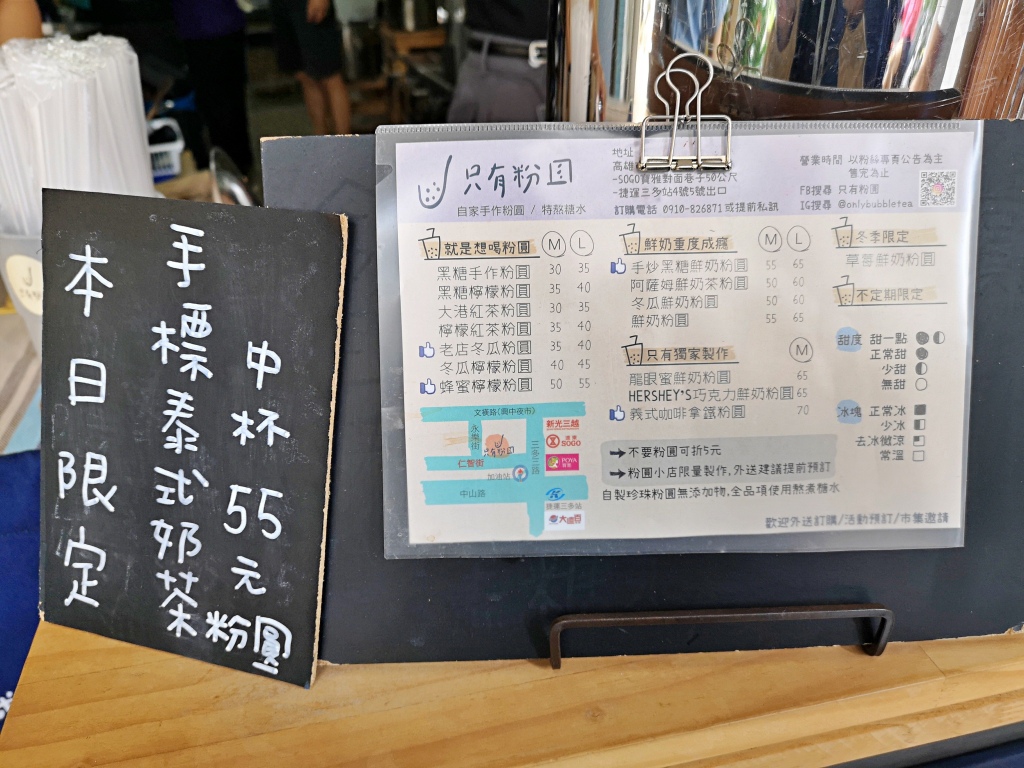 本日限定
手標泰式奶茶粉圓
中杯55元
只有粉圓
自家手作粉圓 / 特熬糖水
地址
高雄
-SOGO寶雅對面巷子50公尺
-捷運三多站4號5號出口
訂購電話 0910-826871或提前私訊
營業時間 以粉絲專頁公告為主
售完為止
FB搜尋 只有粉圓
IG搜尋 @onlybubbletea
就是想喝粉圓 M L
黑糖手作粉圓 30 35
黑糖檸檬粉圓 35 40
大港紅茶粉圓 30 35
檸檬紅茶粉圓 35 40
老店冬瓜粉圓 35 40
冬瓜檸檬粉圓 40 45
蜂蜜檸檬粉圓 50 55
鮮奶重度成癮 M L
手炒黑糖鮮奶粉圓 55 65
阿薩姆鮮奶茶粉圓 50 60
冬瓜鮮奶粉圓 50 60
鮮奶粉圓 55 65
只有獨家製作 M
龍眼蜜鮮奶粉圓 65
HERSHEY'S巧克力鮮奶粉圓 65
義式咖啡拿鐵粉圓 70
冬季限定
草莓鮮奶粉圓
不定期限定
甜度 甜一點
正常甜
少甜
無甜
冰塊 正常冰
少冰
去冰微涼
常溫
文橫路(興中夜市)
永樂街
只有粉圓
仁智街
加油站
中山路
三多三路
新光三越
SOGO
POYA
寶雅
捷運三多站
大遠百
→不要粉圓可折5元
→粉圓小店限量製作,外送建議提前預訂
自製珍珠粉圓無添加物,全品項使用熬煮糖水
歡迎外送訂購/活動預訂/市集邀請